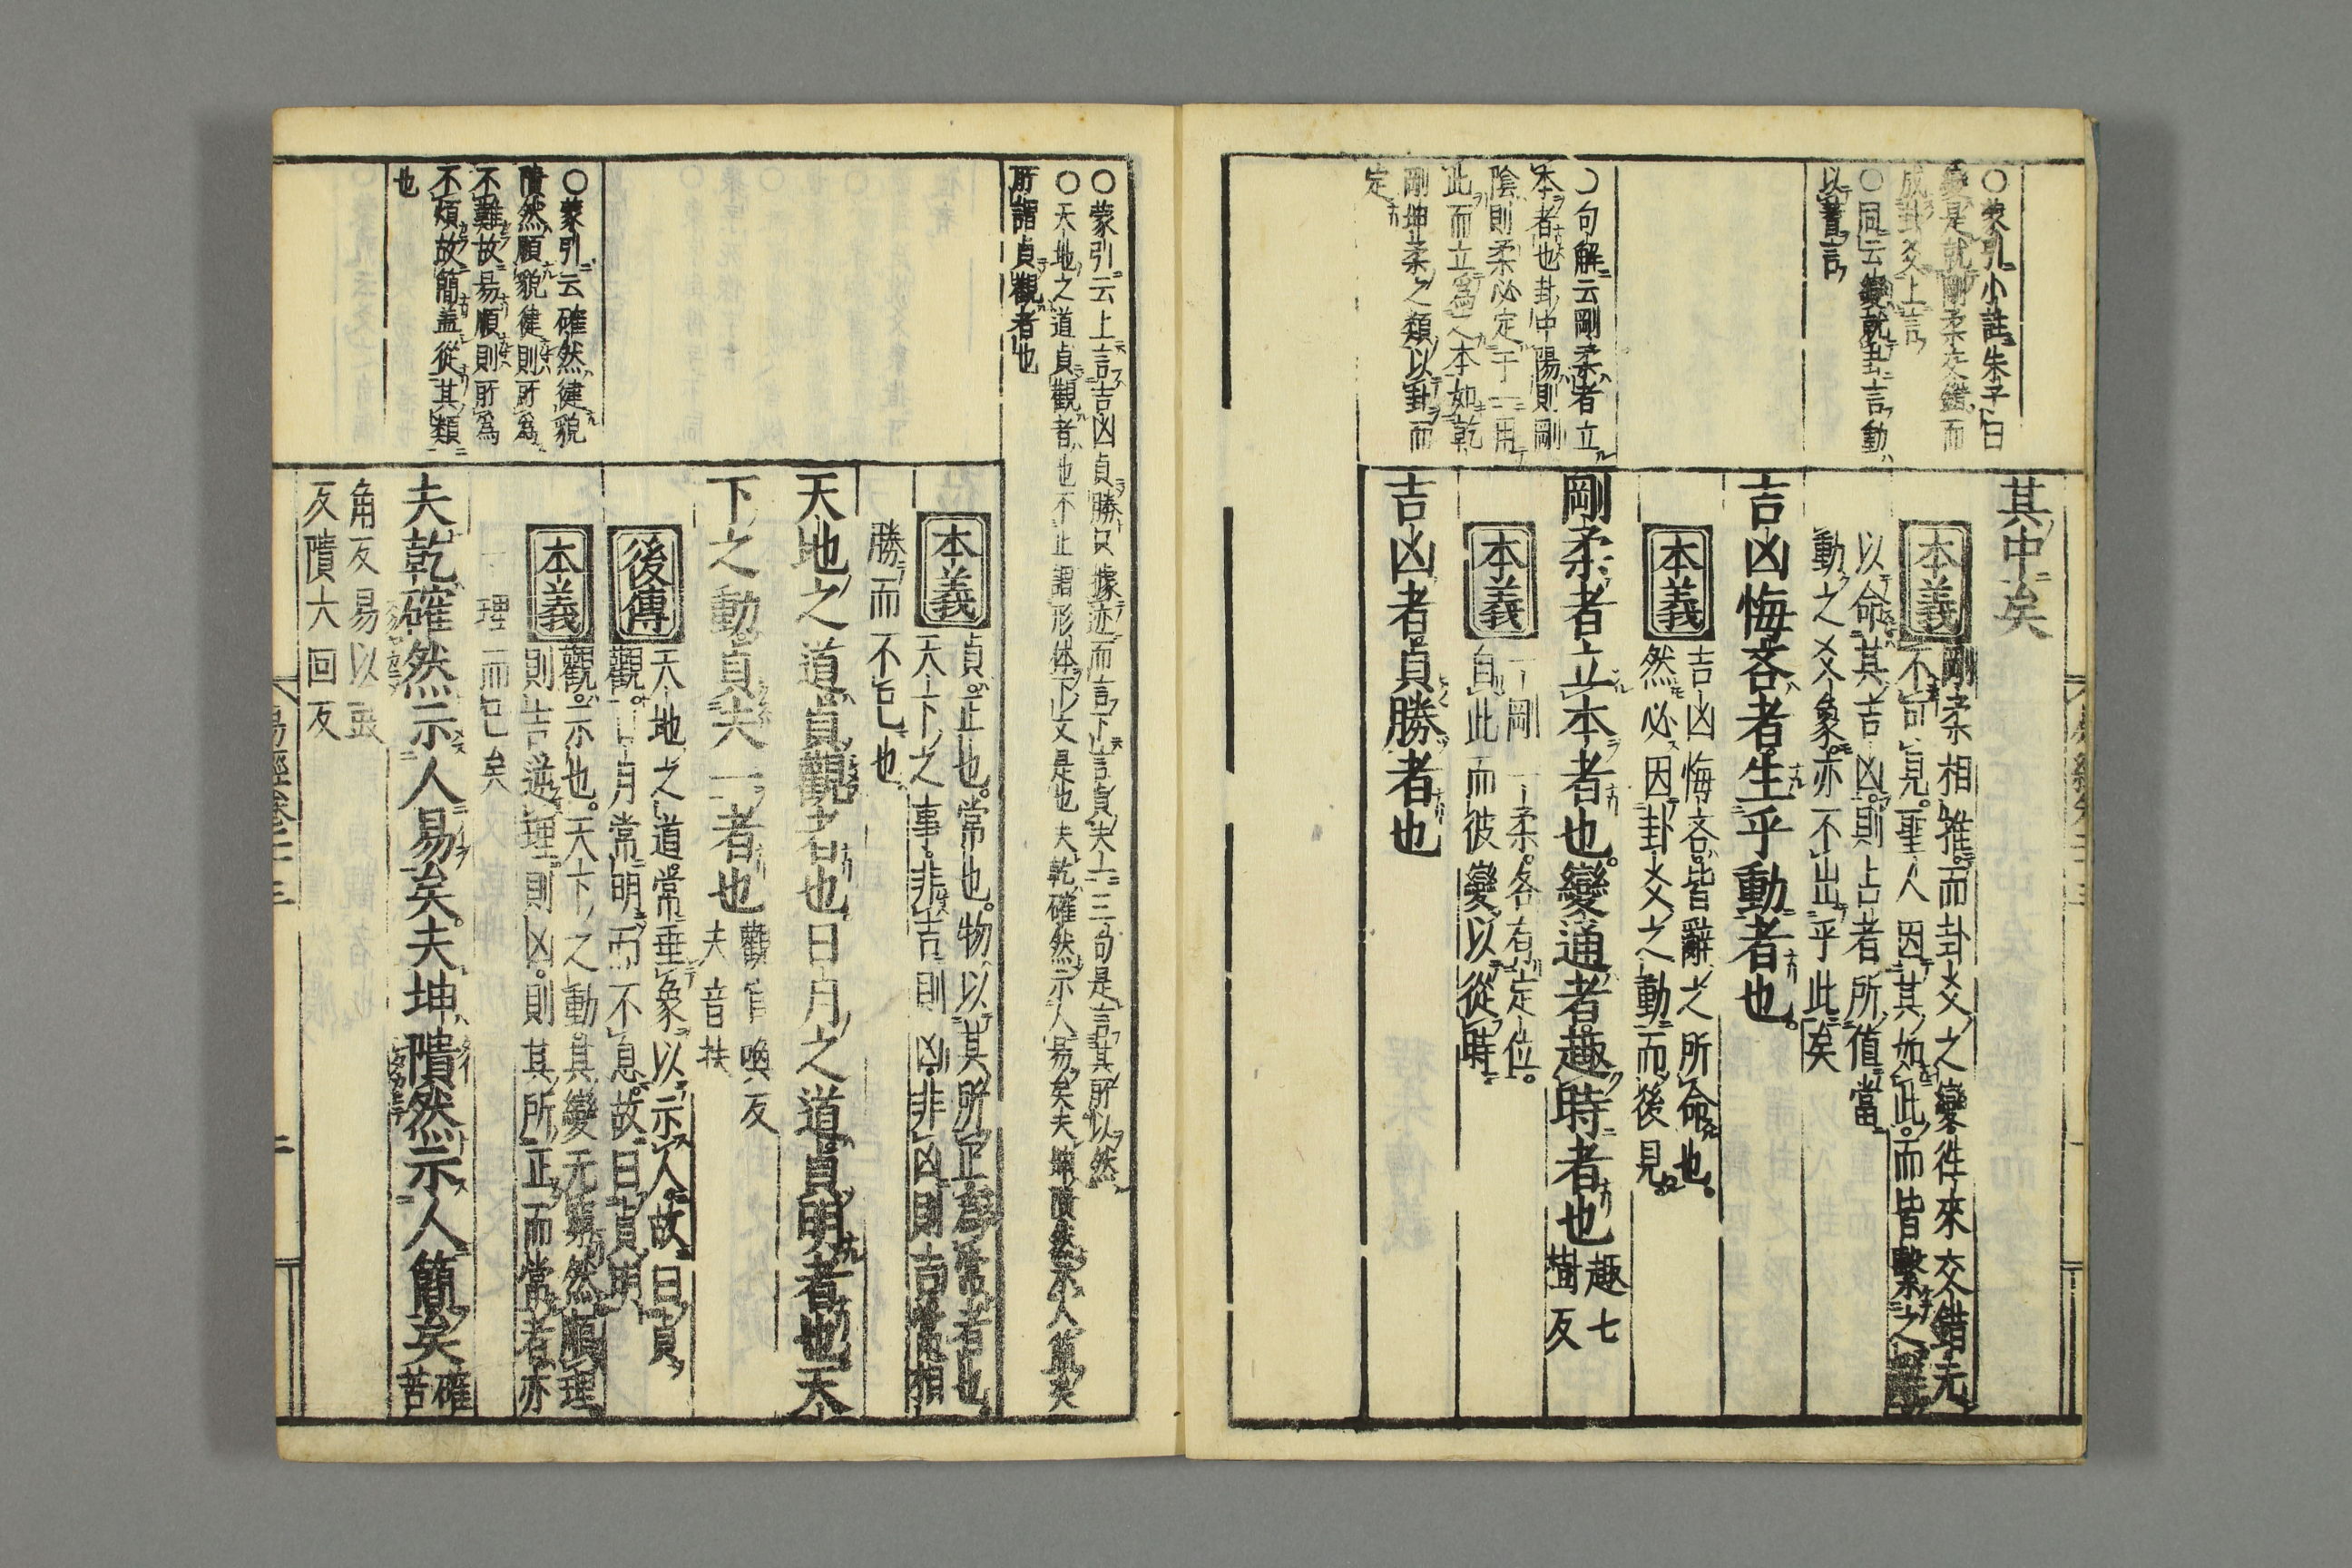 ○蒙引小註朱子曰
變是就剛柔交錯而
成卦爻上言
○同云變就卦言動
以蓍言
句解云剛柔者立
本者也卦中陽則剛
陰則柔必定于一用
此而立為之本如乾
剛坤柔之類以卦而
定
其中矣
本義
剛柔相推而卦爻之變徃來交錯无
不可見聖人因其如此而皆繫之辭
以命其吉凶則占者所值當
動之爻象亦不出乎此矣
吉凶悔吝者生乎動者也
本義
吉凶悔吝皆辭之所命也
然必因卦爻之動而後見
剛柔者立本者也變通者趣時者也
趣七
樹反
本義
一剛一柔各有定位
自此而彼變以從時
吉凶者貞勝者也
○蒙引云上言吉凶貞勝只據迹而言下言貞夫一三句是言其所以然
○天地之道貞觀者也不止謂形体下文是也夫乾確然示人易矣夫坤隤然示人簡矣
所謂貞觀者也
○蒙引云確然健貌
隤然順貌健則所為
不難故易順則所為
不煩故簡盖從其類
也
本義
貞正也常也物以其所正為常者也
天下之事非吉則凶非凶則吉常相
勝而不已也
天地之道貞觀者也日月之道貞明者也天
下之動貞夫一者也
觀官喚反
夫音扶
後傳
天地之道常垂象以示人故曰貞
觀日月常明而不息故曰貞明
本義
觀示也天下之動其變无窮然順理
則吉逆理則凶則其所正而常者亦
一理而已矣
夫乾確然示人易矣夫坤隤然示人簡矣
確苦
角反易以豉
反隤大回反
易經卷二十三
二